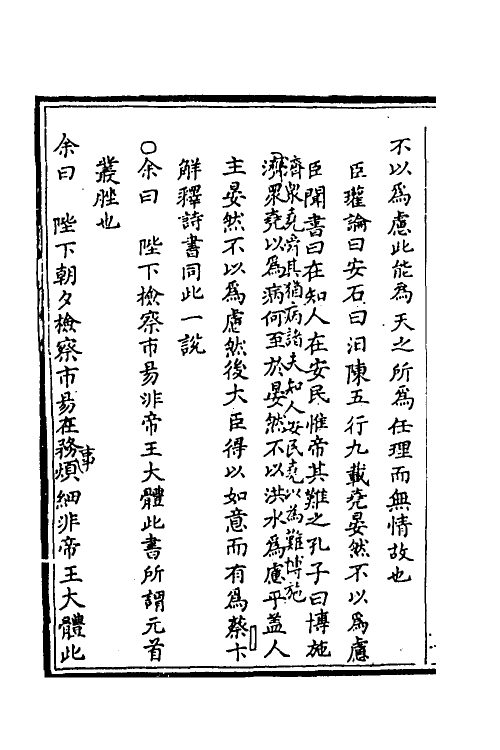 不以爲慮此能為天之所爲任理而無情故也
臣瓘論曰安石曰汨陳五行九載堯晏然不以爲慮
臣聞書曰在知人在安民惟帝其難之孔子曰博施
濟衆堯舜其猶病諸夫知人安民堯以為難博施
濟眾堯以爲病何至於晏然不以洪水爲慮乎盖人
主晏然不以爲慮然後大臣得以如意而有爲蔡卞
解釋詩書同此一說
○余曰 陛下檢察市易非帝王大體此書所謂元首
叢脞也
余曰 陛下朝夕檢察市易在務事煩細非帝王大體此